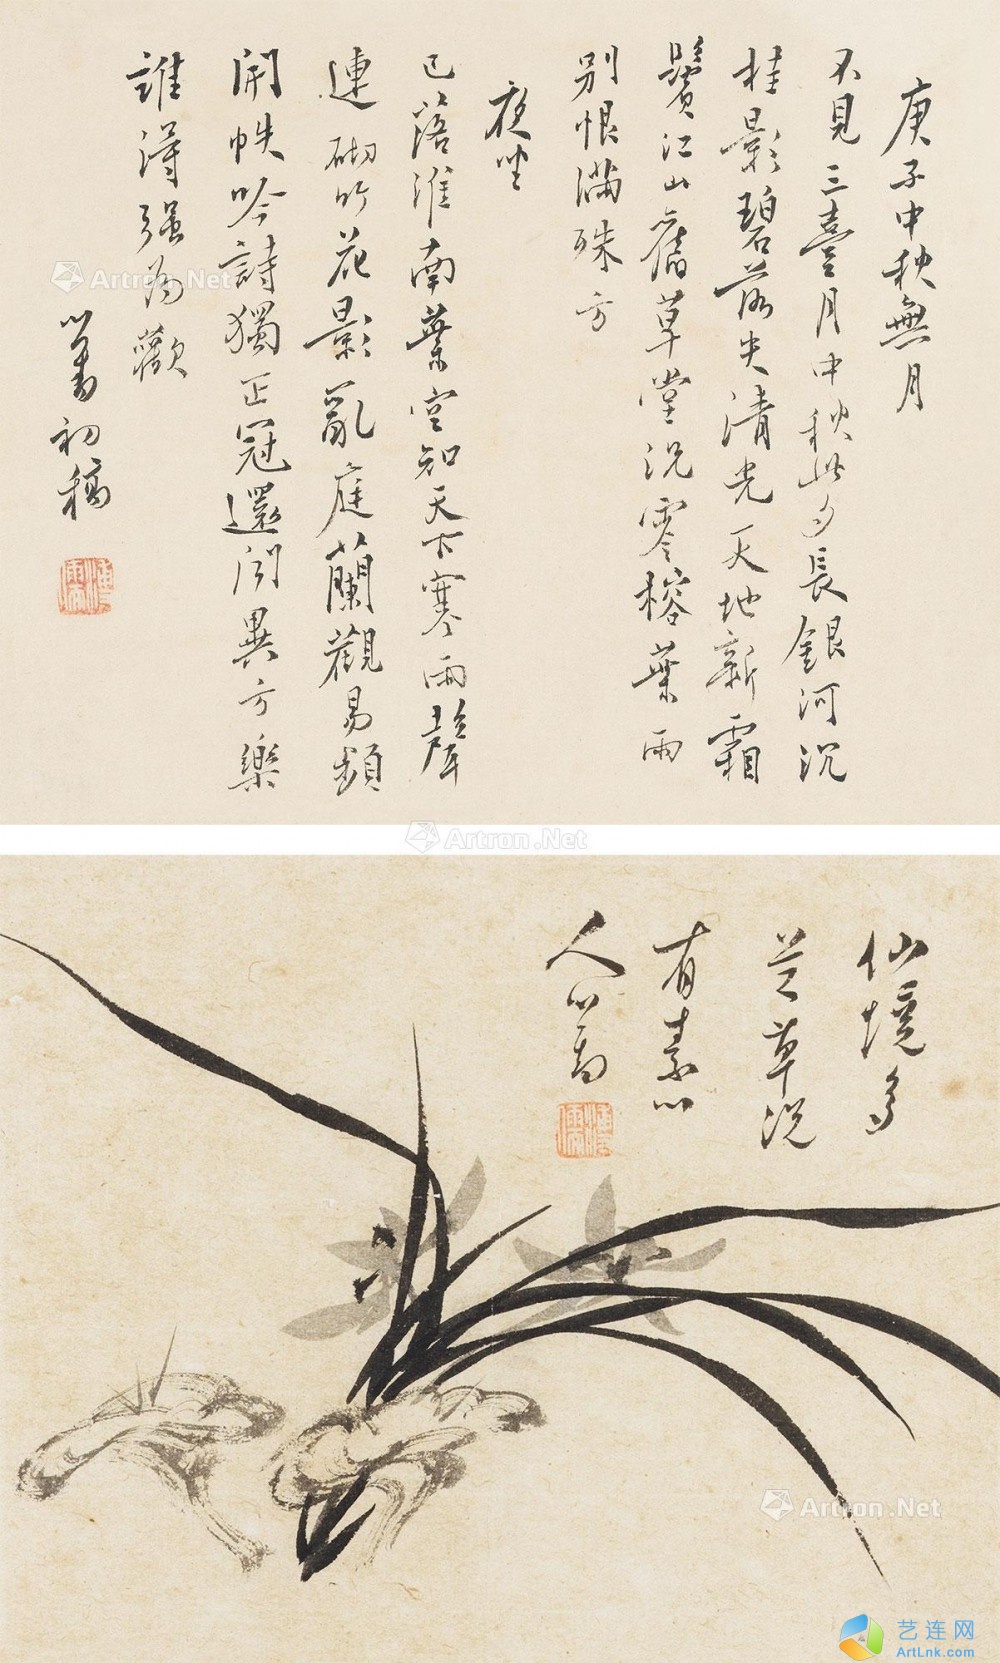 庚子中秋無月
不見三臺月中秋此夕長銀河沉
桂影碧落失清光天地新霜
鬢江山舊草堂況零榕葉雨
別恨滿殊方
夜坐
已落淮南葉空知天下寒雨聲
連砌竹花影亂庭蘭觀易頻
開帙吟詩獨正冠還聞異方樂
誰得強為歡
心畬初稿
Artron.Net
Artron.Net
仙境多
芝草況
有素心
人心畬
Artron.Net
艺连网
ArtLnk.com